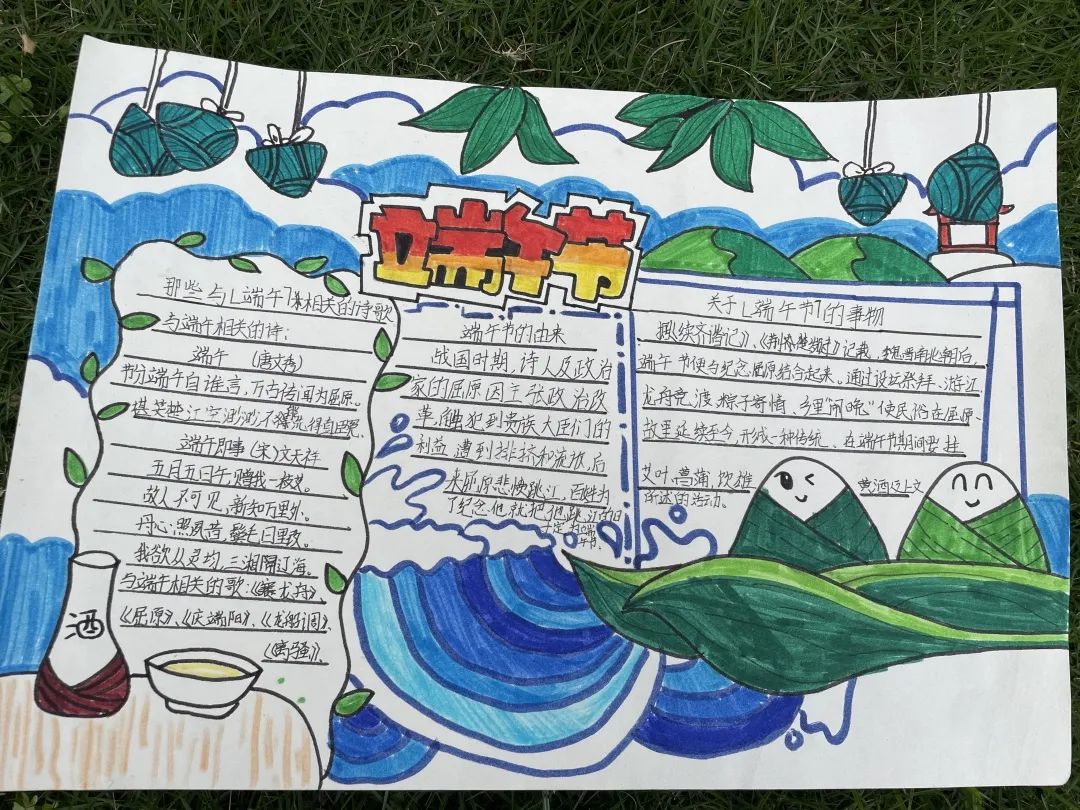 端午节
那些与[端午]相关的诗歌
与端午相关的诗：
端午 (唐文秀)
节分端午自谁言，万古传闻为屈原。
堪笑楚江空渺渺，不能洗得自臣冤。
端午即事(宋)文天祥
五月五日午，赠我一枝艾。
故人不可见，新知万里外。
丹心照夙昔，鬓毛日已改。
我欲从灵均，三湘隔辽海。
与端午相关的歌：《赛龙舟》
《屈原》、《庆端阳》、《龙船调》、
《离骚》。
酒
端午节的由来
战国时期，诗人及政治
家的屈原因主张政治改
革，触犯到贵族大臣们的
利益，遭到排挤和流放，后
来屈原悲愤跳江，百姓为
了纪念他，就把他跳江的日
子定为端
午节。
关于[端午节]的事物
据《续齐谐记》、《荆楚岁时》记载，魏晋南北朝后，
端午节便与纪念屈原结合起来。通过设坛祭拜、游江
龙舟竞渡、粽子寄情、乡里“闹晚”使民俗在屈原
故里延续至今，形成一种传统、在端午节期间要挂
艾叶、菖蒲、饮雄
黄酒及上文
所述的活动。